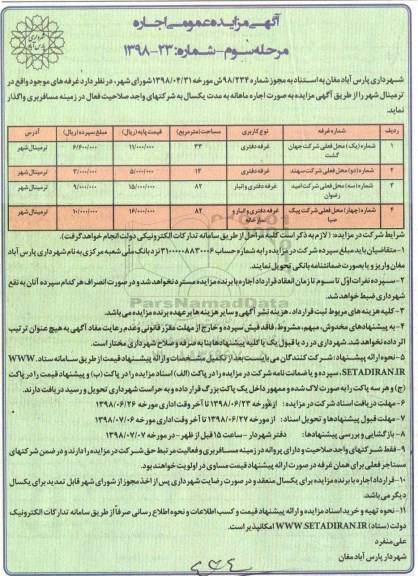 آگهی مزایده عمومی اجاره
مرحله سوم-شماره: ۲۳-۱۳۹۸
شهرداری پارس آباد مغان
شهرداری پارس آباد مغان به استناد به مجوز شماره ۹۸/۲۳۴ش مورخه ۱۳۹۸/۰۴/۳۱ شورای شهر، در نظر دارد غرفه های موجود واقع در
ترمینال شهر را از طریق آگهی مزایده به صورت اجاره ماهانه به مدت یکسال به شرکتهای واجد صلاحیت فعال در زمینه مسافربری واگذار
نماید.
ردیف شماره غرفه نوع کاربری مساحت(مترمربع) قیمت پایه(ریال) مبلغ سپرده(ریال) آدرس
۱ شماره (یک) محل فعلی شرکت جهان گشت غرفه دفتری ۳۳ ۱۱/۰۰۰/۰۰۰ ۶/۶۰۰/۰۰۰ ترمینال شهر
۲ شماره (دو) محل فعلی شرکت سهند غرفه دفتری ۱۲ ۵/۰۰۰/۰۰۰ ۳/۰۰۰/۰۰۰ ترمینال شهر
۳ شماره (سه) محل فعلی شرکت امید رضوان غرفه دفتری و انبار ۸۲ ۱۵/۰۰۰/۰۰۰ ۹/۰۰۰/۰۰۰ ترمینال شهر
۴ شماره (چهار) محل فعلی شرکت پیک صبا غرفه دفتری و انبار و ۸۲ ۱۶/۰۰۰/۰۰۰ ۱۰/۰۰۰/۰۰۰ ترمینال شهر
شرایط شرکت در مزایده: ( لازم به ذکر است کلیه مراحل از طریق سامانه تدارکات الکترونیکی دولت انجام خواهد گرفت).
۱-متقاضیان باید مبلغ سپرده شرکت در مزایده را به شماره حساب ۳۱۰۰۰۰۰۸۸۳۰۰۶ نزد بانک ملی شعبه مرکزی به نام شهرداری پارس آباد
مغان واریز و یا بصورت ضمانتنامه بانکی تحویل نمایند.
۲-سپرده نفرات اول تا سوم تا زمان انعقاد قرارداد اجاره با برنده مزایده مسترد نخواهد شد و در صورت انصراف هر کدام سپرده آنان به نفع
شهرداری ضبط خواهد شد.
۳-کلیه هزینه های مربوط ثبت قرارداد، هزینه نشر آگهی و سایر هزینه ها بر عهده برنده مزایده می باشد.
۴-به پیشنهادهای مخدوش، مبهم، مشروط، فاقد فیش سپرده و خارج از مهلت مقرر قانونی و عدم رعایت مفاد آگهی به هیچ عنوان ترتیب
اثر داده نخواهد شد. شهرداری در رد یا قبول یک یا کلیه پیشنهادها بنا به صرفه و صلاح شهرداری مختار است.
۵-نحوه ارائه پیشنهاد: شرکت کنندگان می بایست بعد از تکمیل مشخصات و ارائه پیشنهاد قیمت از طریق سامانه ستاد WWW.
SETADIRAN.IR، سپرده و یا ضمانت نامه شرکت در مزایده را در پاکت (الف) اسناد مزایده را در پاکت (ب) و پیشنهاد قیمت را در پاکت
(ج) و هر سه پاکت را به صورت لاک شده و ممهور داخل یک پاکت بزرگ قرار داده و به حراست شهرداری تحویل و رسید دریافت دارند.
۶-مهلت دریافت اسناد شرکت در مزایده: از مورخه ۱۳۹۸/۰۶/۲۳ تا آخر وقت اداری مورخه ۱۳۹۸/۰۶/۲۶
۷-مهلت قبول پیشنهادها و تحویل اسناد: از مورخه ۱۳۹۸/۰۶/۲۷ تا آخر وقت اداری مورخه ۱۳۹۸/۰۷/۰۶
۸-بازگشایی و بررسی پیشنهادها: دفتر شهردار-ساعت ۱۵ قبل از ظهر-در مورخه ۱۳۹۸/۰۷/۰۷
۹-فقط شرکتهای واجد صلاحیت و دارای پروانه در زمینه مسافربری و فعالیت مرتبط حق شرکت در مزایده را دارند و در ضمن شرکتهای
مستاجر فعلی برای همان غرفه در صورت ارائه پیشنهاد قیمت مساوی در اولویت خواهند بود.
۱۰-قرارداد اجاره با برنده مزایده برای یکسال منعقد و در صورت رضایت شهرداری پس از اخذ مجوز از شورای شهر قابل تمدید برای یکسال
دیگر می باشد.
۱۱-نحوه تهیه و خرید اسناد مزایده و ارائه پیشنهاد قیمت و کسب اطلاعات و نحوه اطلاع رسانی صرفاً از طریق سامانه تدارکات الکترونیک
دولت (ستاد) WWW.SETADIRAN.IR امکانپذیر است.
علی منفرد
شهردار پارس آباد مغان
ParsNamadData